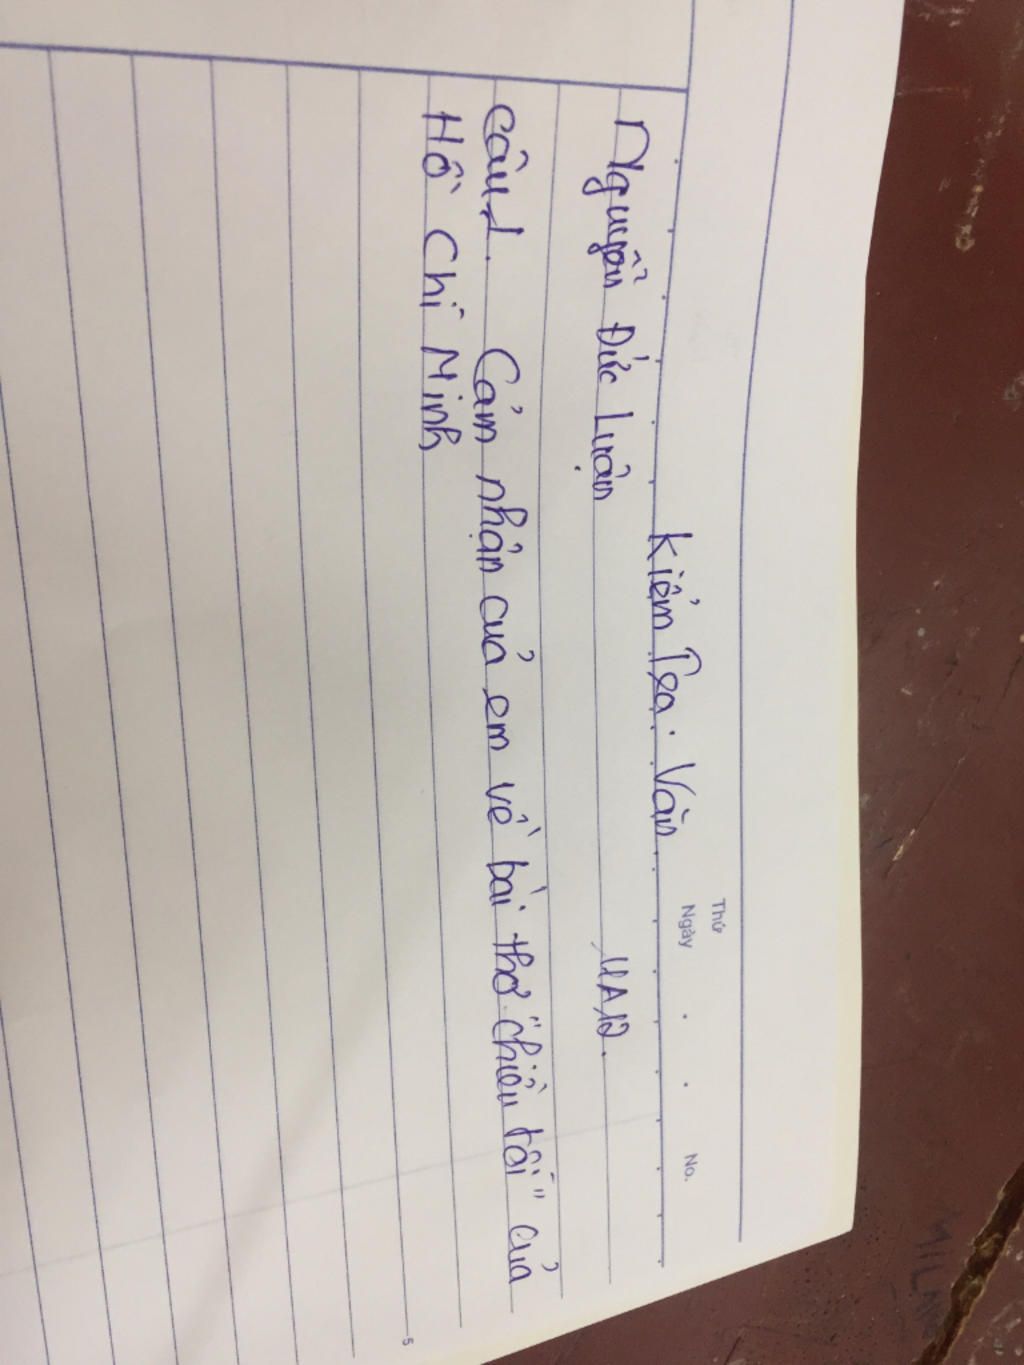 Thứ
Ngày . . No.
Kiểm Tra. Văn
Nguyễn Đức Luận 11A12.
Câu 1. Cảm nhận của em về bài thơ "chiều tối" của
Hồ Chí Minh
5